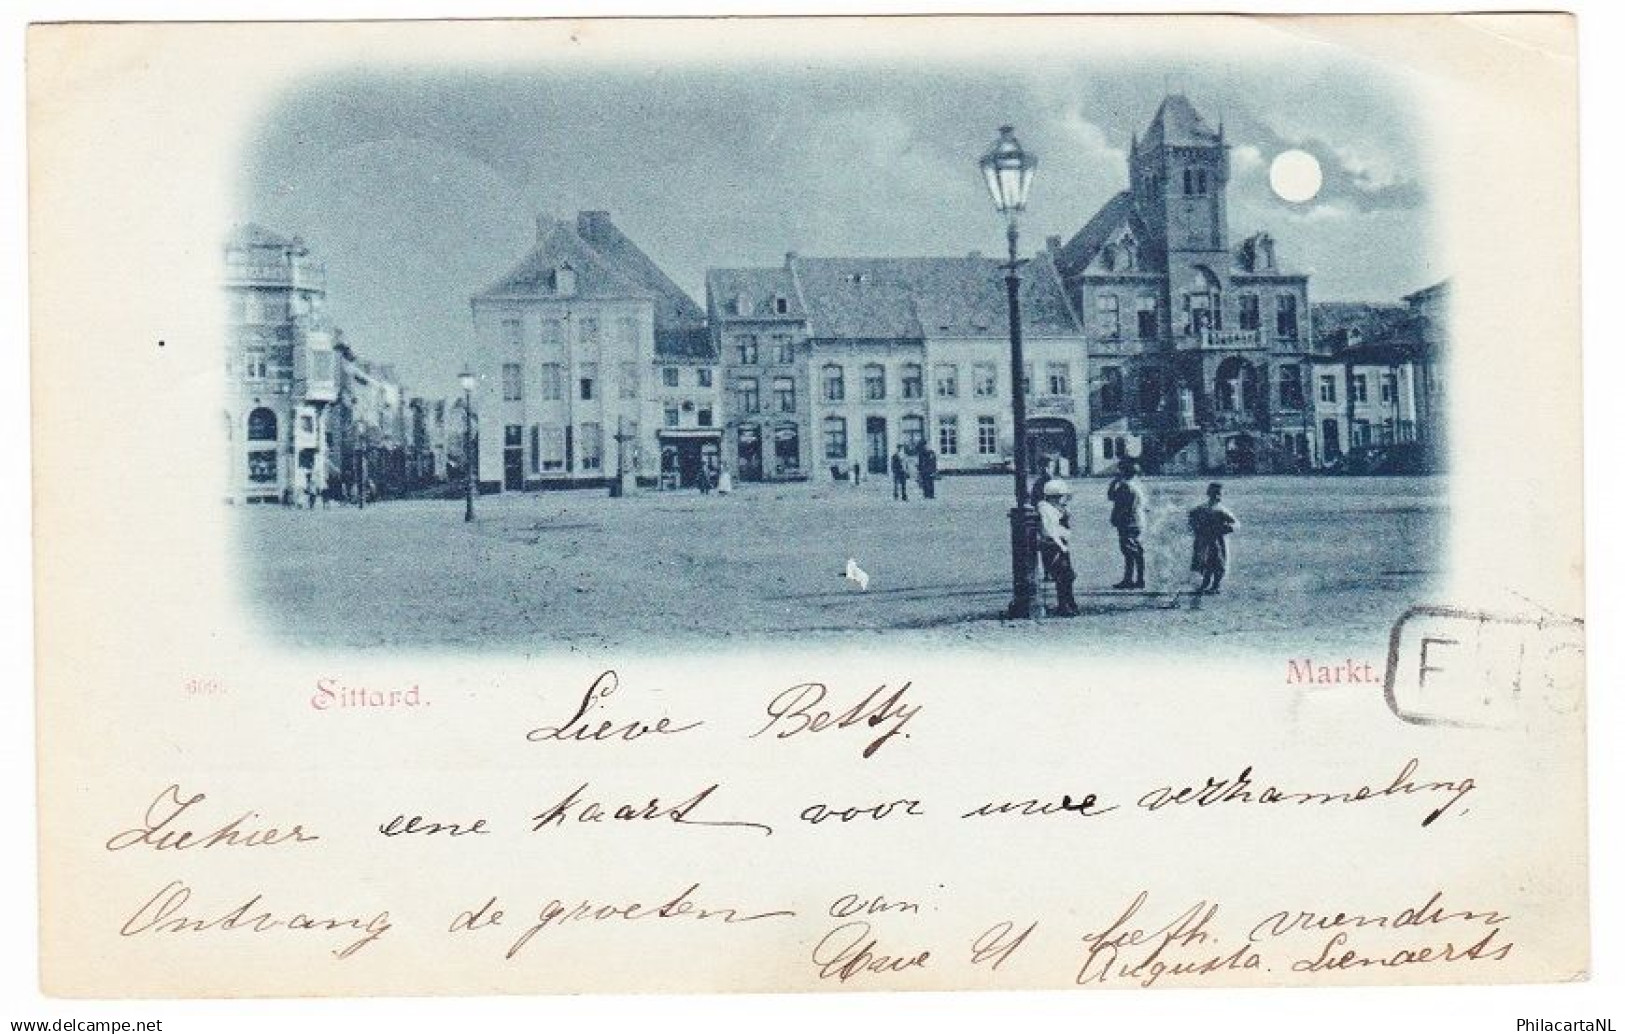 Sittard.
Markt.
Lieve Betsy.
Ziehier eene kaart voor uwe verzameling,
Ontvang de groeten van
Uwe U liefh. vriendin
Augusta. Lienaerts
PhilacartaNL
www.delcampe.net